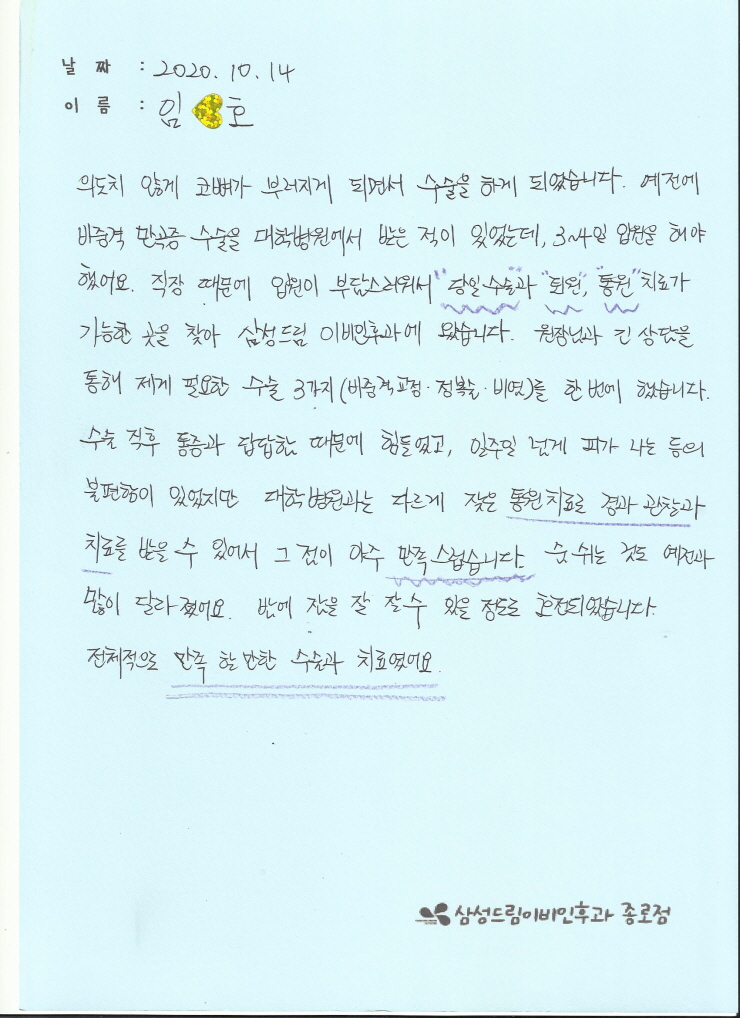 날 짜 : 2020. 10. 14
이 름 : 임 호
의도치 않게 코뼈가 부러지게 되면서 수술을 하게 되었습니다. 예전에
비중격 만곡증 수술을 대학병원에서 받은 적이 있었는데, 3~4일 입원을 해야
했어요. 직장 때문에 입원이 부담스러워서 "당일수술"과 "퇴원", "통원"치료가
가능한 곳을 찾아 삼성드림 이비인후과에 왔습니다. 원장님과 긴 상담을
통해 제게 필요한 수술 3가지(비중격교정·정복술·비염)를 한번에 했습니다.
수술 직후 통증과 답답함 때문에 힘들었고, 일주일 넘게 피가 나는 등의
불편함이 있었지만 대학병원과는 다르게 잦은 통원치료로 경과 관찰과
치료를 받을 수 있어서 그 점이 아주 만족스럽습니다. 숨 쉬는 것도 예전과
많이 달라졌어요. 밤에 잠을 잘 잘 수 있을 정도로 호전되었습니다.
전체적으로 만족 할 만한 수술과 치료였어요.
삼성드림이비인후과 종로점